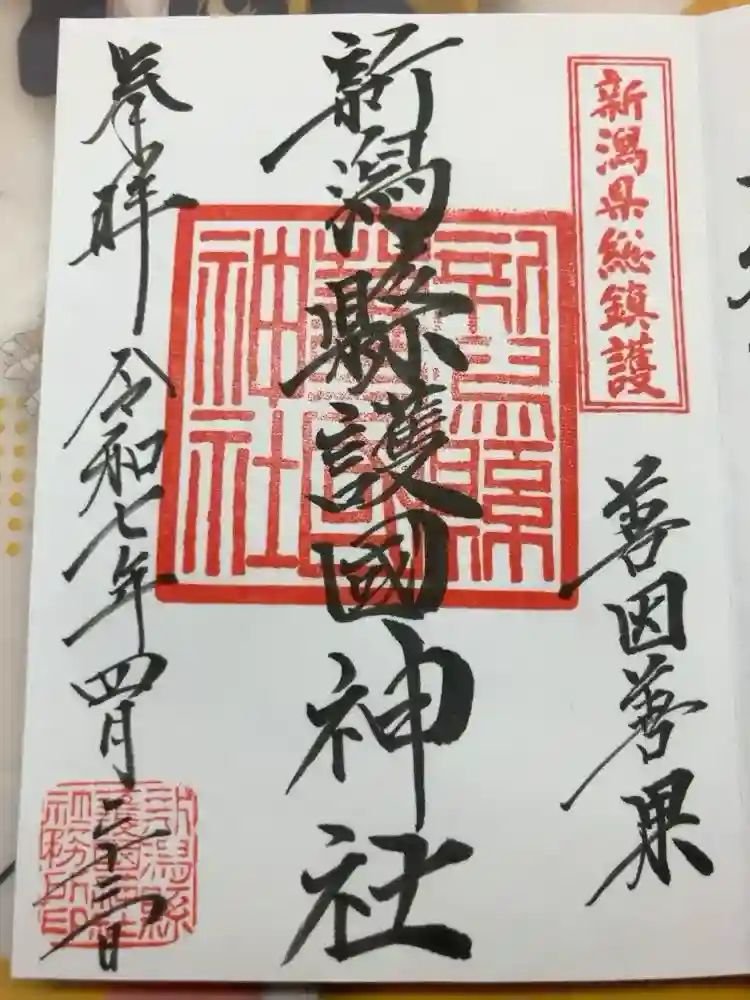 新潟県総鎮護
善因善果
新潟縣護國神社
新潟縣護國神社
奉拝 令和七年四月二十三日
新潟縣護國神社社務所印